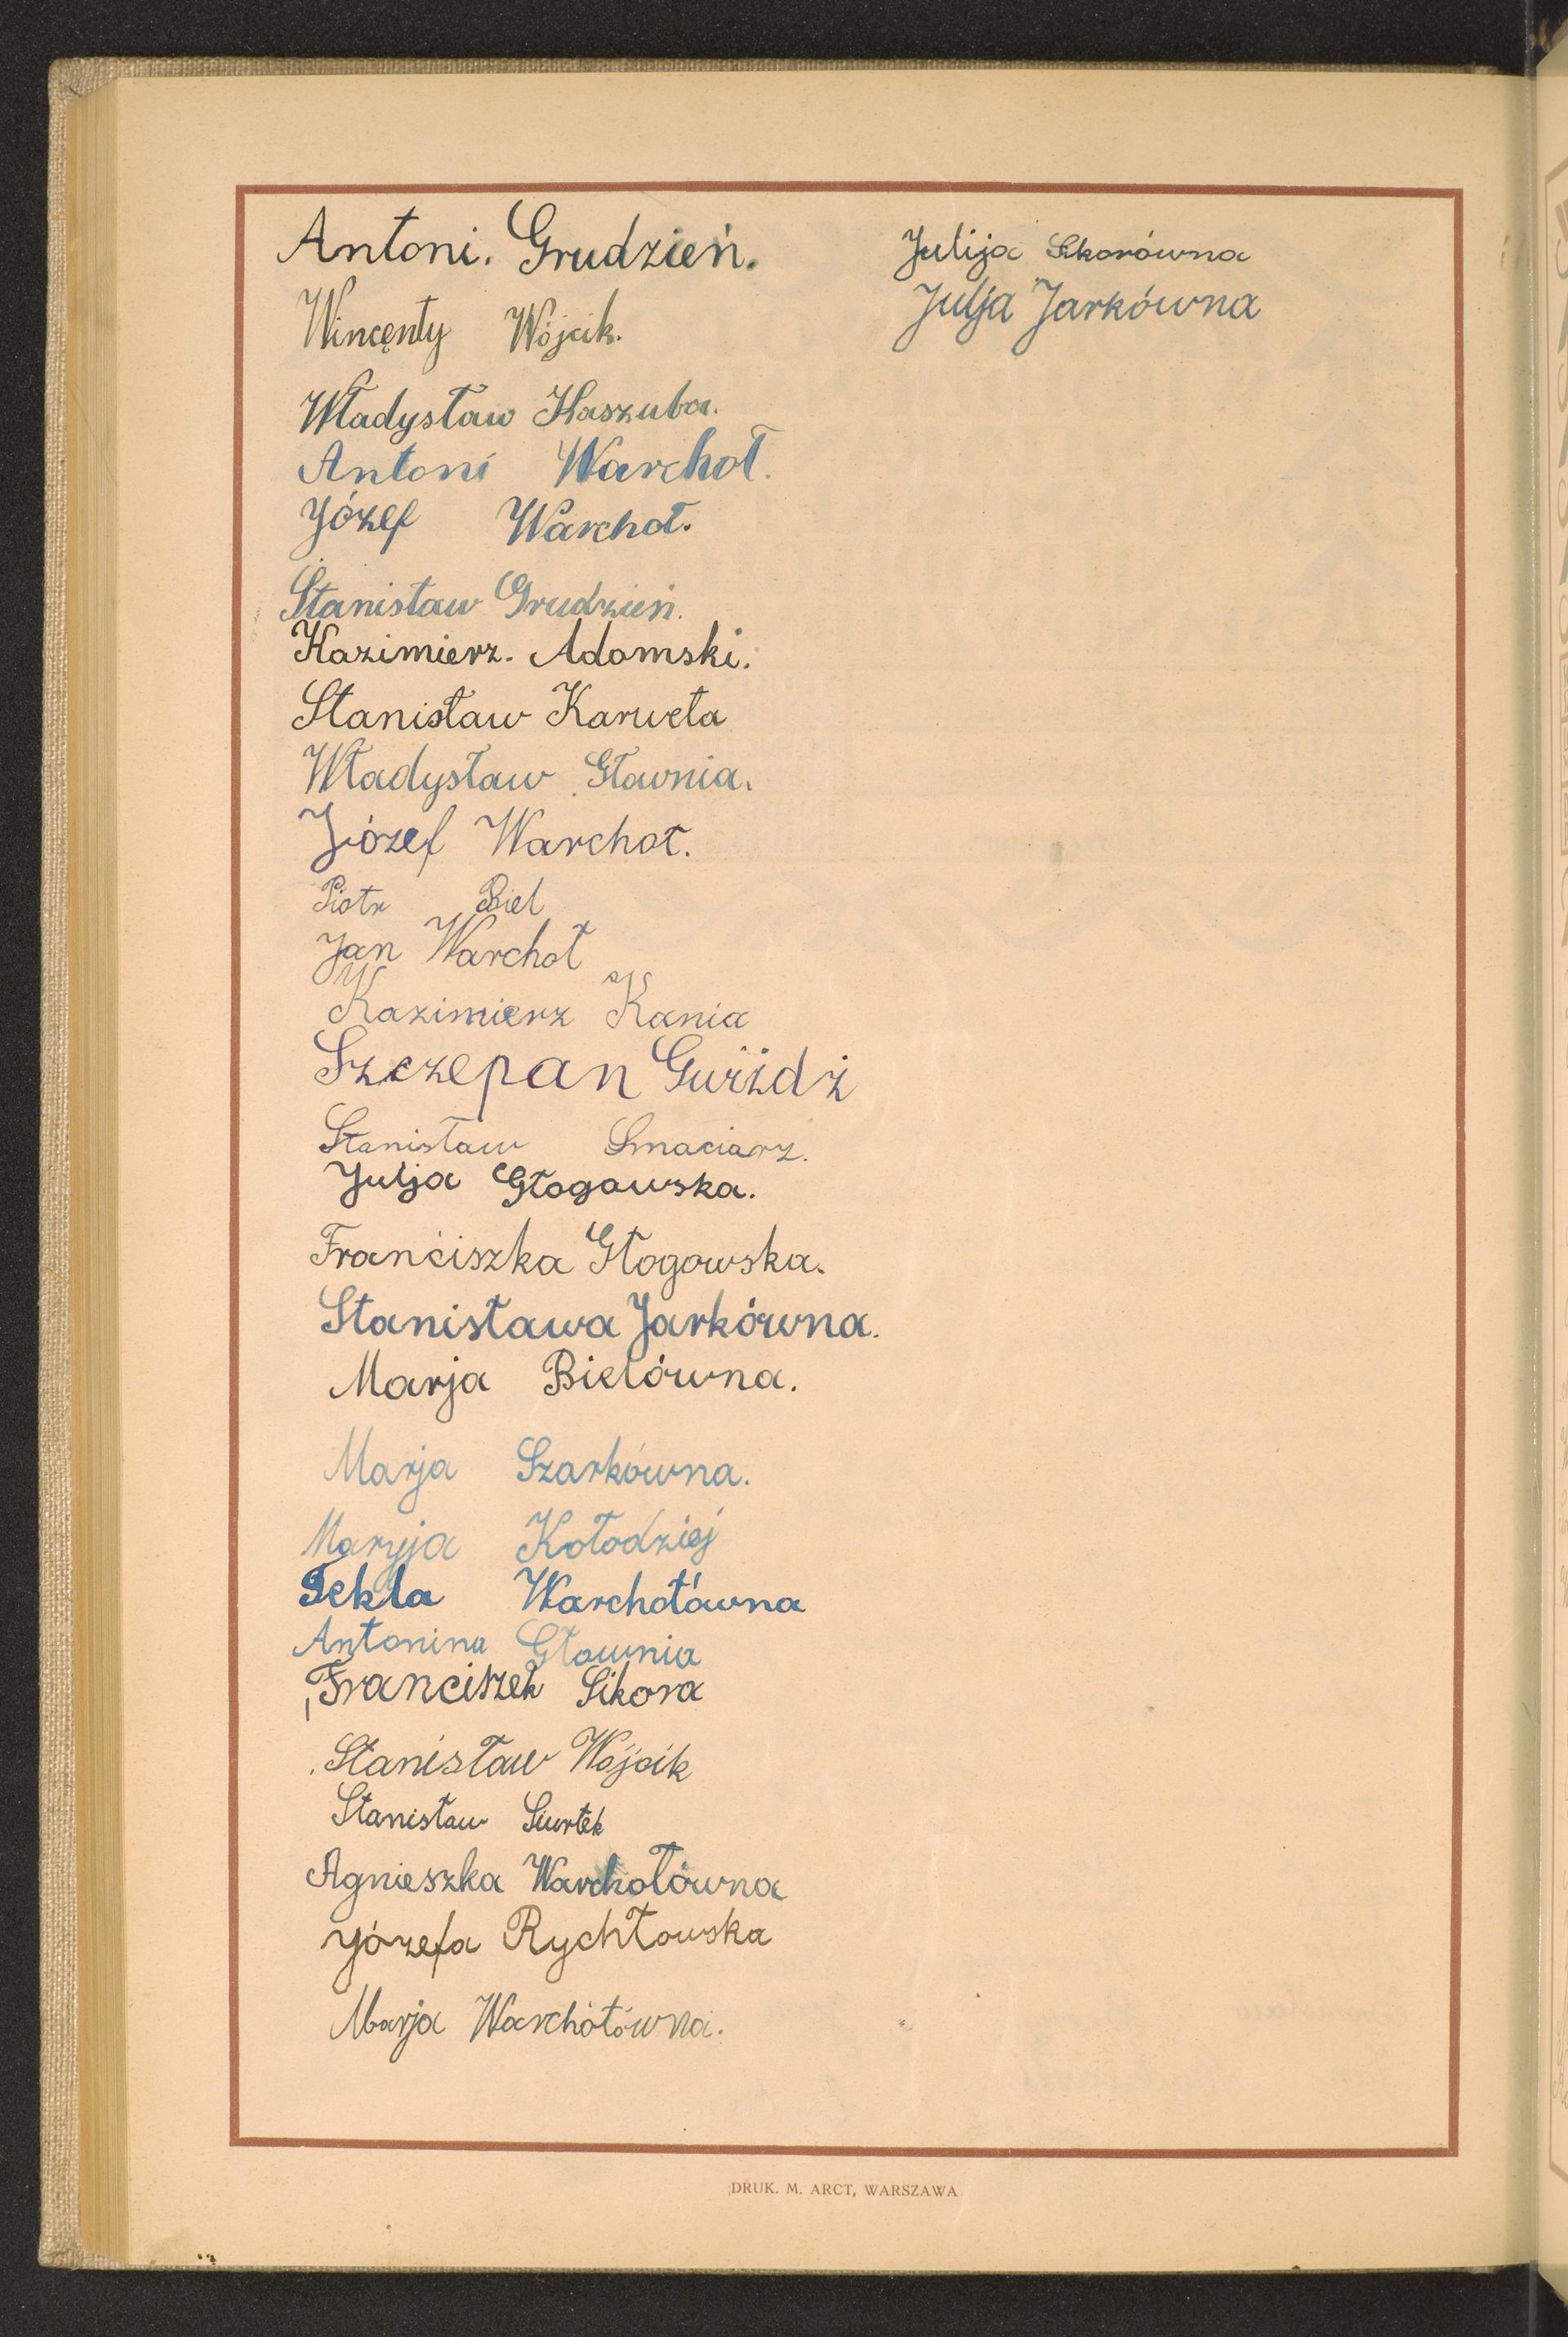 Antoni. Grudzień.
Wincęnty Wójcik.
Władysław Kaszuba.
Antoni Warchoł.
Józef Warchoł.
Stanisław Grudzień.
Kazimierz. Adamski.
Stanisław Karweta
Władysław Głownia.
Józef Warchoł.
Piotr Biel
Jan Warchoł
Kazimierz Kania
Szczepan Gwiżdż
Stanisław Smaciarz.
Julja Głogowska.
Franciszka Głogowska.
Stanisława Jarkówna.
Marja Bielówna.
Marja Szarkówna.
Maryja Kołodziej
Tekla Warchołówna
Antonina Głownia
Franciszek Sikora
Stanisław Wójcik
Stanisław Siurtek
Agnieszka Warchołówna
Józefa Rychłowska
Marja Warchołówna.
Julija Sikorówna
Julja Jarkówna
DRUK. M. ARCT, WARSZAWA